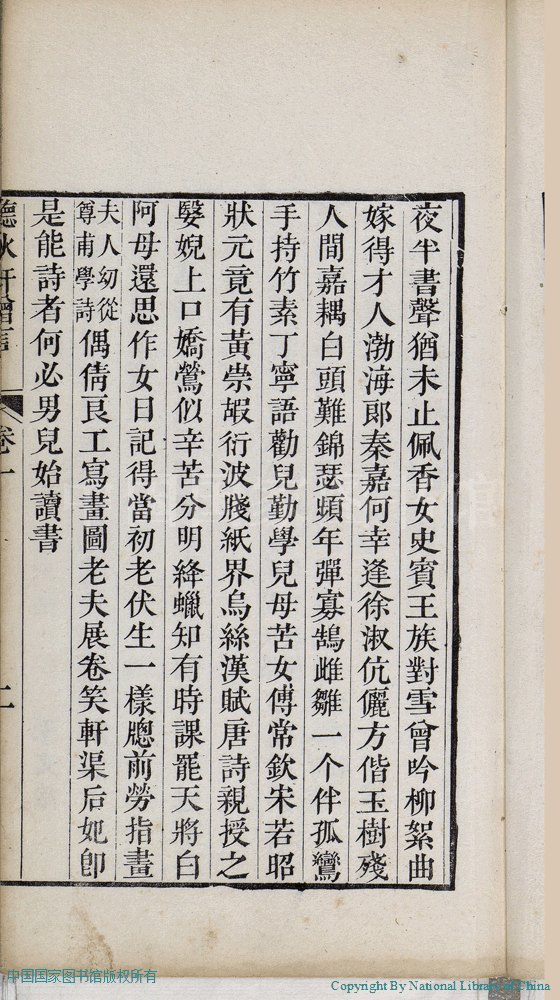 夜半書聲猶未止佩香女史賓王族對雪曾吟柳絮曲
嫁得才人渤海郎秦嘉何幸逢徐淑伉儷方偕玉樹殘
人間嘉耦白頭難錦瑟頻年彈寡鵠雌雛一个伴孤鸞
手持竹素丁寧語勸兒勤學兒母苦女傅常欽宋若昭
狀元竟有黃崇嘏衍波牋紙界烏絲漢賦唐詩親授之
嫛婗上口嬌鶯似辛苦分明絳蠟知有時課罷天將白
阿母還思作女日記得當初老伏生一樣牕前勞指畫
夫人幼從尊甫學詩偶倩良工寫畫圖老夫展卷笑軒渠后妃卽
是能詩者何必男兒始讀書
聽秋軒贈言 卷一 二
中国国家图书馆版权所有
Copyright By National Library of China